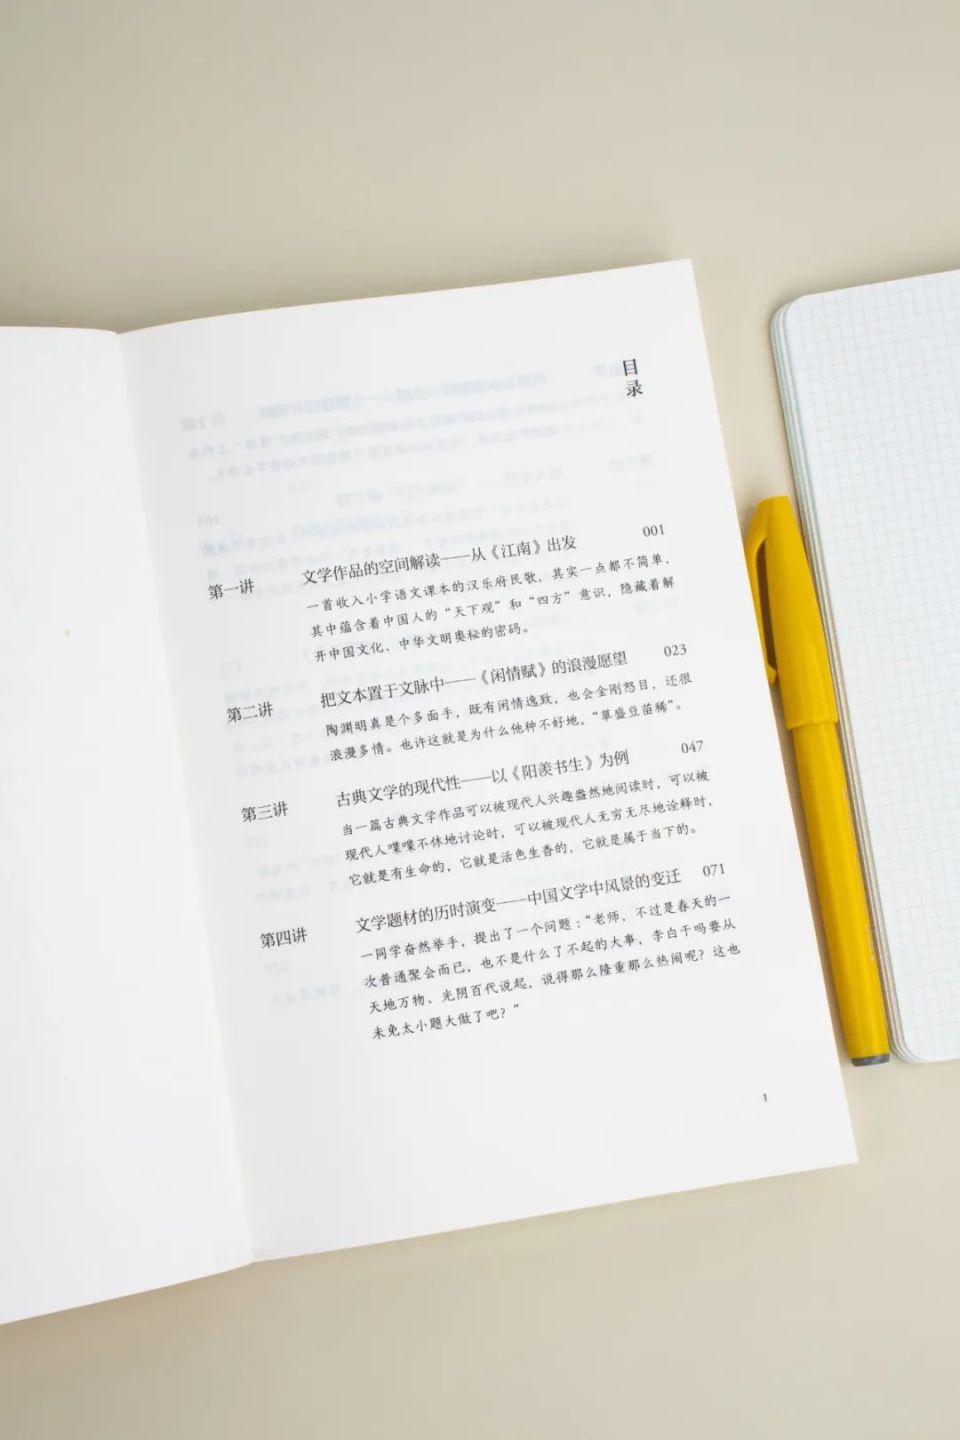 目录
第一讲 文学作品的空间解读——从《江南》出发 001
一首收入小学语文课本的汉乐府民歌，其实一点都不简单，
其中蕴含着中国人的“天下观”和“四方”意识，隐藏着解
开中国文化、中华文明奥秘的密码。
第二讲 把文本置于文脉中——《闲情赋》的浪漫愿望 023
陶渊明真是个多面手，既有闲情逸致，也会金刚怒目，还很
浪漫多情。也许这就是为什么他种不好地，“草盛豆苗稀”。
第三讲 古典文学的现代性——以《阳羡书生》为例 047
当一篇古典文学作品可以被现代人兴趣盎然地阅读时，可以被
现代人喋喋不休地讨论时，可以被现代人无穷无尽地诠释时，
它就是有生命的，它就是活色生香的，它就是属于当下的。
第四讲 文学题材的历时演变——中国文学中风景的变迁 071
一同学奋然举手，提出了一个问题：“老师，不过是春天的一
次普通聚会而已，也不是什么了不起的大事，李白干吗要从
天地万物、光阴百代说起，说得那么隆重那么热闹呢？这也
未免太小题大做了吧？”
1